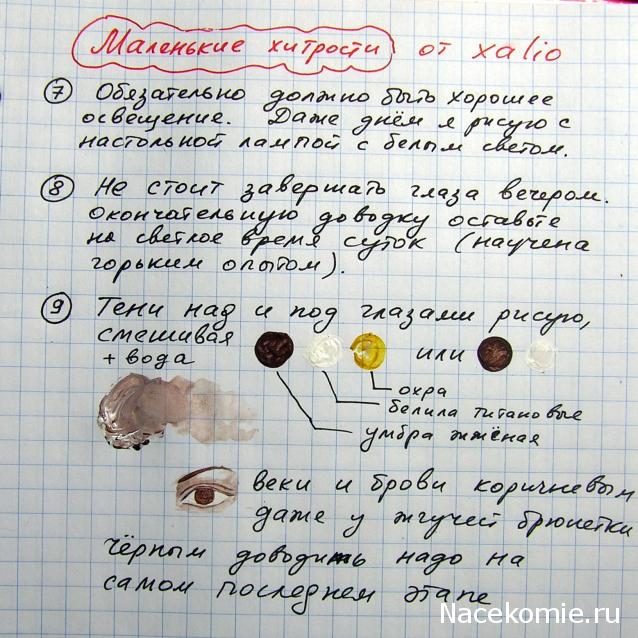 Маленькие хитрости от xalio
7 Обязательно должно быть хорошее
освещение. Даже днём я рисую с
настольной лампой с белым светом.
8 Не стоит завершать глаза вечером.
Окончательную доводку оставьте
на светлое время суток (научена
горьким опытом).
9 Тени над и под глазами рисую,
смешивая
+ вода
или
охра
белила титановые
умбра жжёная
веки и брови коричневым
даже у жгучей брюнетки
чёрным доводить надо на
самом последнем этапе
Nacekomie.ru